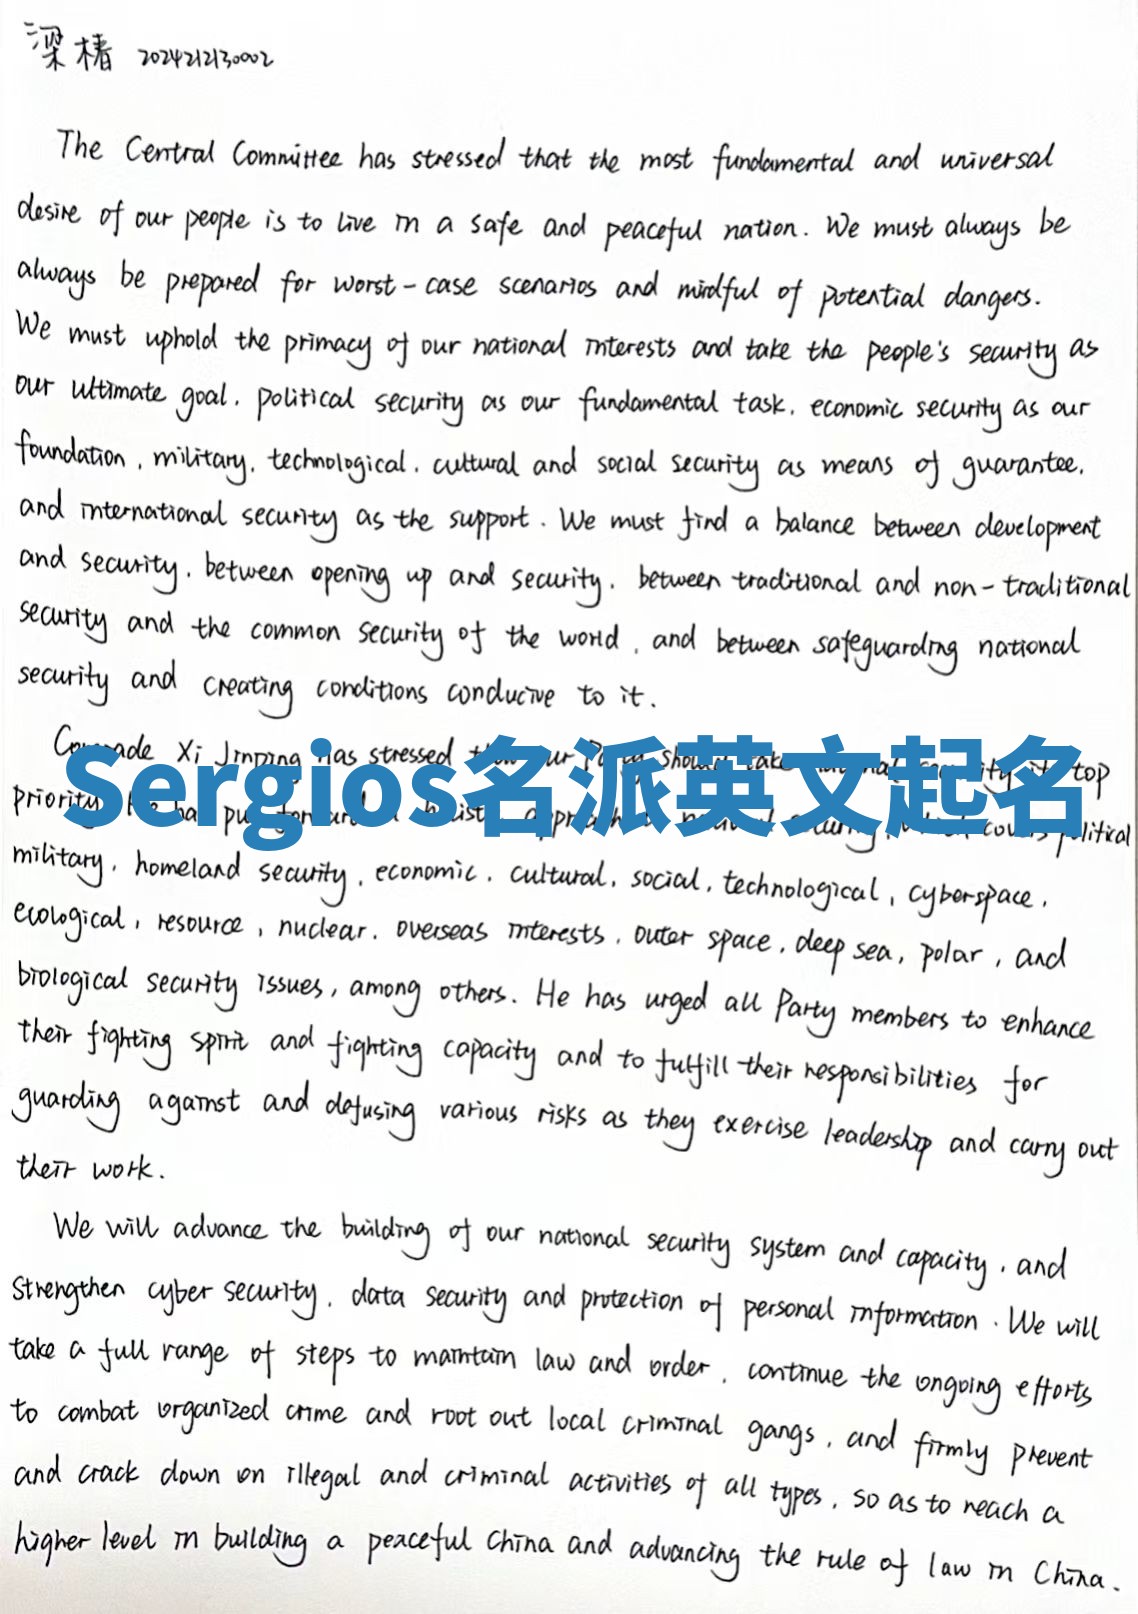 梁椿 2024212130002
The Central Committee has stressed that the most fundamental and universal
desire of our people is to live in a safe and peaceful nation. We must always be
always be prepared for worst-case scenarios and mindful of potential dangers.
We must uphold the primacy of our national interests and take the people's security as
our ultimate goal, political security as our fundamental task, economic security as our
foundation, military, technological, cultural and social security as means of guarantee,
and international security as the support. We must find a balance between development
and security, between opening up and security, between traditional and non-traditional
security and the common security of the world, and between safeguarding national
security and creating conditions conducive to it.
Comrade Xi Jinping has stressed our should take top
Sergios名派英文起名
priority political
military, homeland security, economic, cultural, social, technological, cyberspace,
ecological, resource, nuclear, overseas interests, outer space, deep sea, polar, and
biological security issues, among others. He has urged all Party members to enhance
their fighting spirit and fighting capacity and to fulfill their responsibilities for
guarding against and defusing various risks as they exercise leadership and carry out
their work.
We will advance the building of our national security system and capacity, and
strengthen cyber security, data security and protection of personal information. We will
take a full range of steps to maintain law and order, continue the ongoing efforts
to combat organized crime and root out local criminal gangs, and firmly prevent
and crack down on illegal and criminal activities of all types, so as to reach a
higher level in building a peaceful China and advancing the rule of law in China.